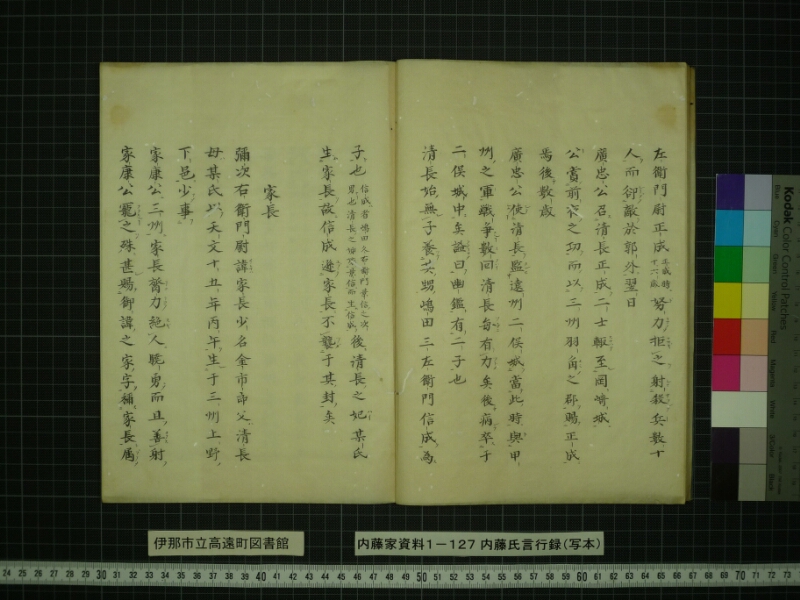 左衛門尉正成正成時十六歳努力拒之射殺兵数十
人而卻敵於郭外翌日
廣忠公召清長正成二士輙至岡崎城
公嘗前 之功而以三州羽角之郡賜正成
焉後数歳
廣忠公使清長監遠州二俣城當此時與甲
州之軍戦争数回清長每有力矣後病卒于
二俣城中矣謚曰幽鑑有二子也
清長始無子養其甥嶋田三左衛門信成為
子也信成者嶋田久右衛門 之次男也清長之 信成後清長之妃某氏
生家長故信成遜家長不襲于其封矣
家長
彌次右衛門尉諱家長少名金市郎父清長
母某氏以天文十五年丙午生于三州上野
下邑少事
家康公三州家長膂力絶人驍勇而且善射
家康公寵之殊甚賜御諱之家字稱家長焉
伊那市立高遠町図書館
内藤家資料1－127 内藤氏言行録(写本)
Kodak Color Control Patches
Blue Cyan Green Yellow Red Magenta White 3/Color Black
24 25 26 27 28 29 30 31 32 33 34 35 36 37 38 39 40 41 42 43 44 45 46 47 48 49 50 51 52 53 54 55 56 57 58 59 60 61 62 63 64 65 66 67 68 69 70 71 72 73